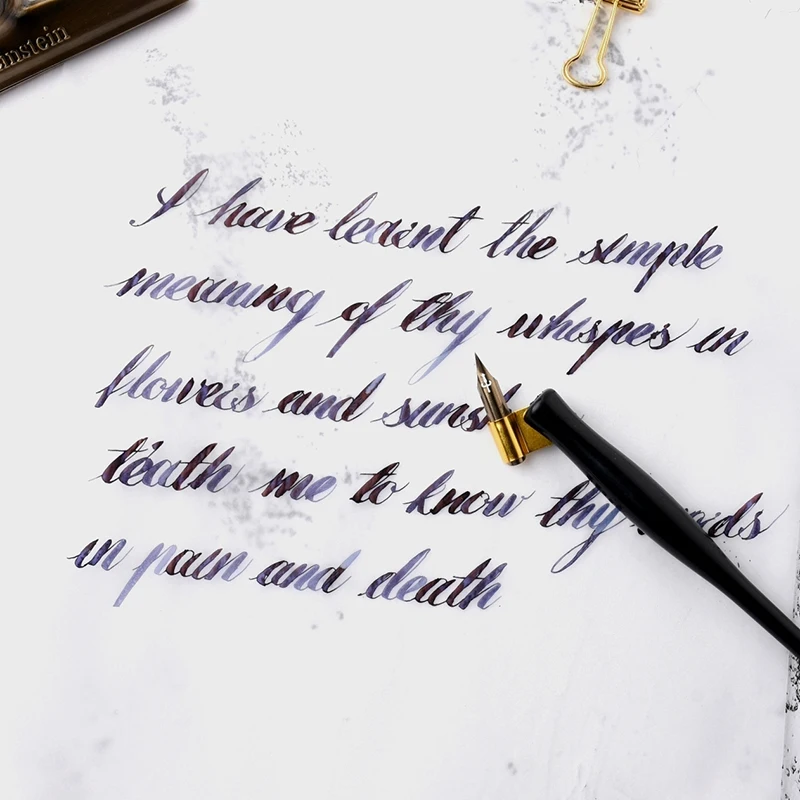 instein
I have learnt the simple
meaning of thy whispes in
flowers and sunsh
teath me to know thy
in pain and death